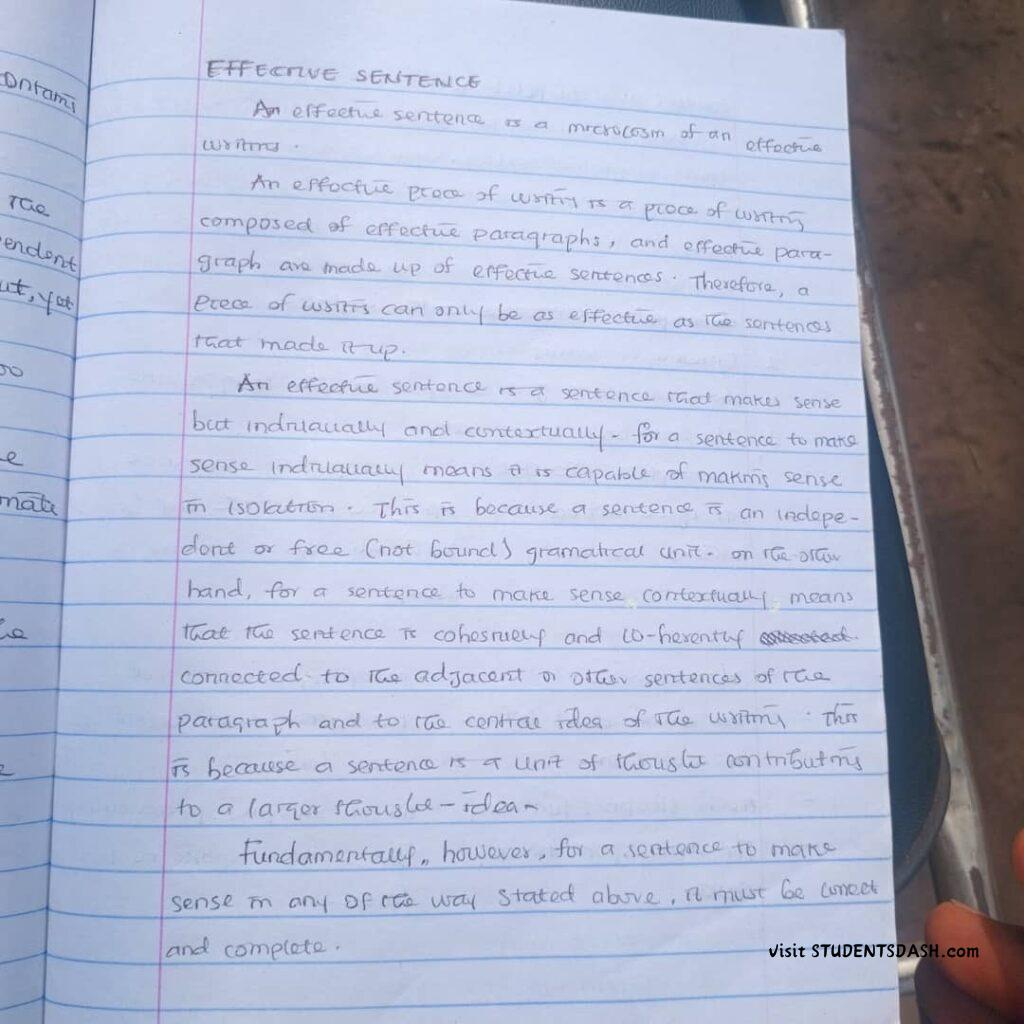 ontains
The
endent
ut, yet
oo
e
nate
he
e
EFFECTIVE SENTENCE
An effective sentence is a microcosm of an effective
writing.
An effective piece of writing is a piece of writing
composed of effective paragraphs, and effective para-
graph are made up of effective sentences. Therefore, a
piece of writing can only be as effective as the sentences
that made it up.
An effective sentence is a sentence that makes sense
but individually and contextually - for a sentence to make
sense individually means it is capable of making sense
in isolation. This is because a sentence is an indepe-
dent or free (not bound) gramatical unit. on the other
hand, for a sentence to make sense contextually, means
that the sentence is cohesively and co-herently
connected to the adjacent or other sentences of the
paragraph and to the central idea of the writing. This
is because a sentence is a unit of thought contributing
to a larger thought - idea -
Fundamentally, however, for a sentence to make
sense in any of the way stated above, it must be correct
and complete.
visit STUDENTSDASH.com